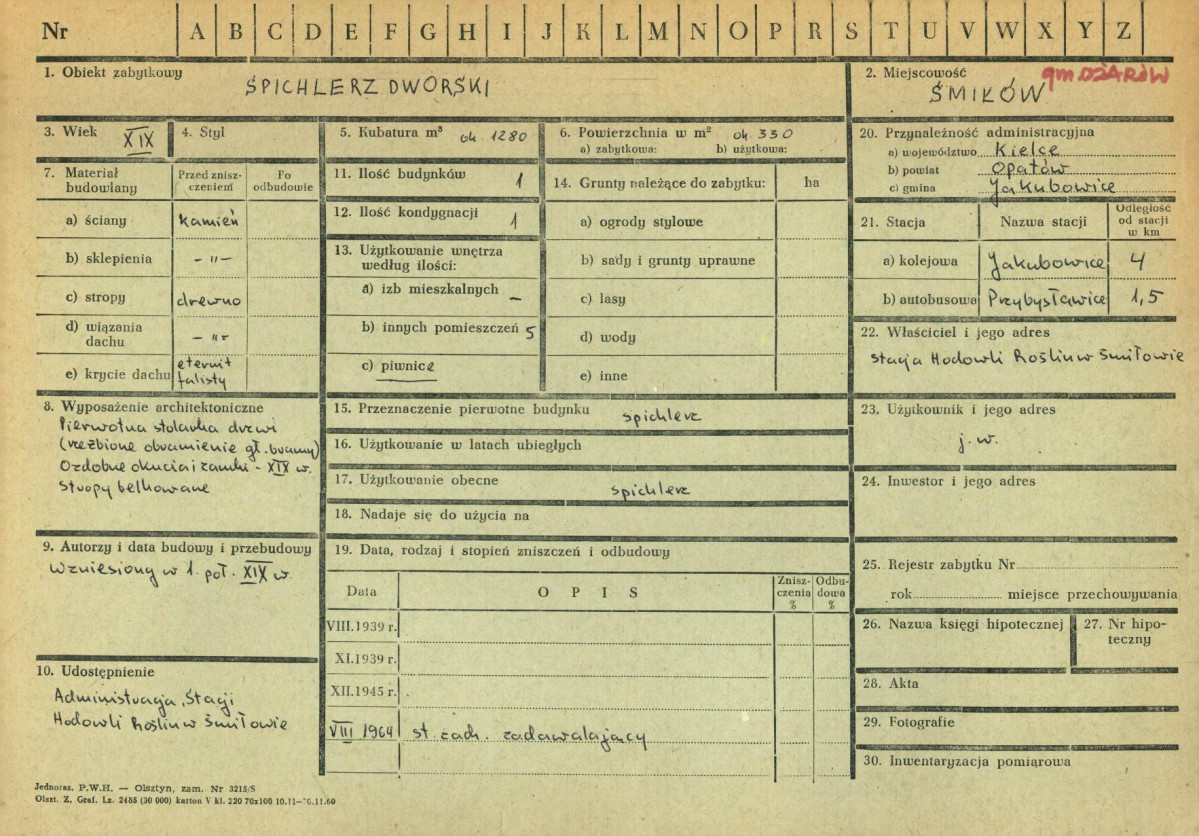 Nr A B C D E F G H I J K L M N O P R S T U V W X Y Z
1. Obiekt zabytkowy
ŚPICHLERZ DWORSKI
2. Miejscowość
gm. OŻARÓW
ŚMIŁÓW
3. Wiek XIX
4. Styl
5. Kubatura m³ ok. 1280
6. Powierzchnia w m² ok. 330
a) zabytkowa: b) użytkowa:
7. Materiał budowlany
Przed znisz-
czeniem
Po
odbudowie
a) ściany kamień
b) sklepienia – " –
c) stropy drewno
d) wiązania
dachu – " –
e) krycie dachu eternit
falisty
8. Wyposażenie architektoniczne
Pierwotna stolarka drzwi
(rzeźbione obramienie gł. bramy)
Ozdobne okucia i zamki - XIX w.
Stropy belkowane
9. Autorzy i data budowy i przebudowy
Wzniesiony w 1. poł. XIX w.
10. Udostępnienie
Administracja Stacji
Hodowli Roślin w Śmiłowie
11. Ilość budynków 1
12. Ilość kondygnacji 1
13. Użytkowanie wnętrza
według ilości:
a) izb mieszkalnych –
b) innych pomieszczeń 5
c) piwnice
14. Grunty należące do zabytku: ha
a) ogrody stylowe
b) sady i grunty uprawne
c) lasy
d) wody
e) inne
15. Przeznaczenie pierwotne budynku spichlerz
16. Użytkowanie w latach ubiegłych
17. Użytkowanie obecne spichlerz
18. Nadaje się do użycia na
19. Data, rodzaj i stopień zniszczeń i odbudowy
Data O P I S
Znisz-
czenia
%
Odbu-
dowa
%
VIII.1939 r.
XI.1939 r.
XII.1945 r.
VIII 1964 st. zach. zadawalający
20. Przynależność administracyjna
a) województwo Kielce
b) powiat Opatów
c) gmina Jakubowice
21. Stacja Nazwa stacji
Odległość
od stacji
w km
a) kolejowa Jakubowice 4
b) autobusowa Przybysławice 1,5
22. Właściciel i jego adres
Stacja Hodowli Roślin w Śmiłowie
23. Użytkownik i jego adres
j. w.
24. Inwestor i jego adres
25. Rejestr zabytku Nr
rok miejsce przechowywania
26. Nazwa księgi hipotecznej
27. Nr hipo-
teczny
28. Akta
29. Fotografie
30. Inwentaryzacja pomiarowa
Jednoraz. P.W.H. — Olsztyn, zam. Nr 3215/S
Olszt. Z. Graf. Lz. 2485 (30 000) karton V kl. 220 70x100 10.11–26.11.60